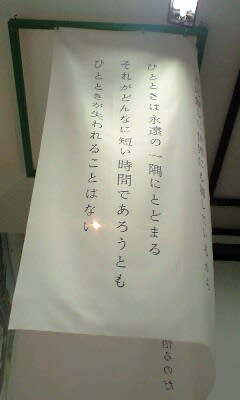 ひとときは永遠の一隅にとどまる
それがどんなに短い時間であろうとも
ひとときが失われることはない
るのだ